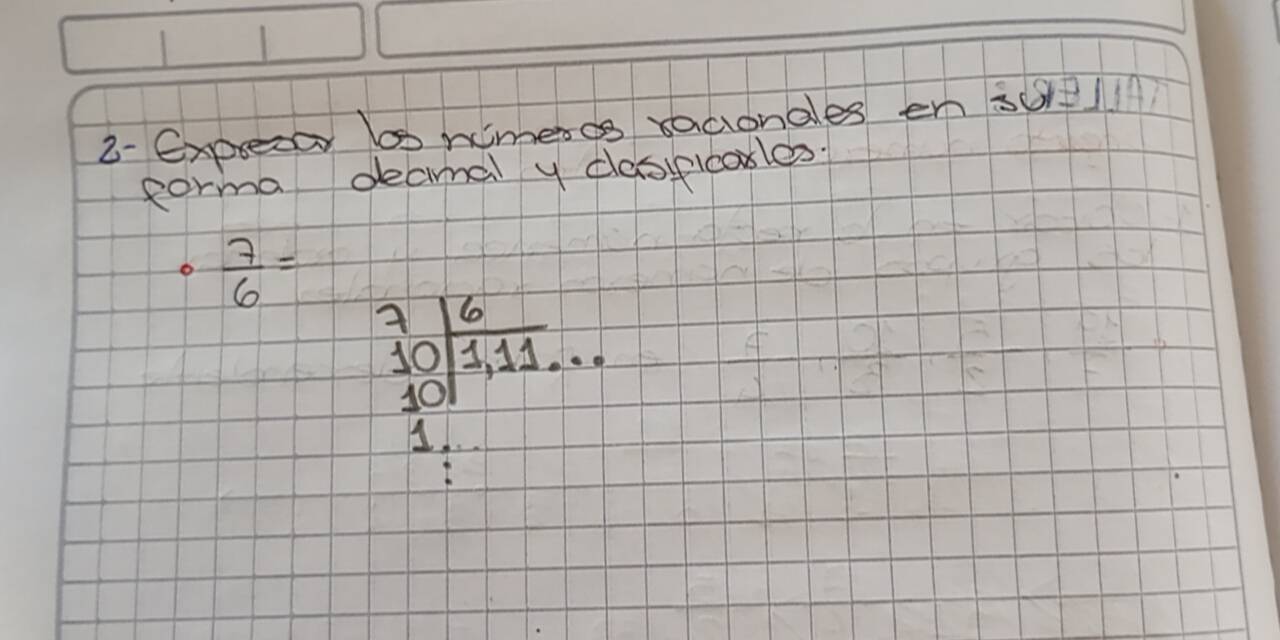 2- Expresar los números racionales en su
forma decimal y clasificarlos.
• 7/6 =
7 | 6
10 | 1,11...
10
1...
⋮